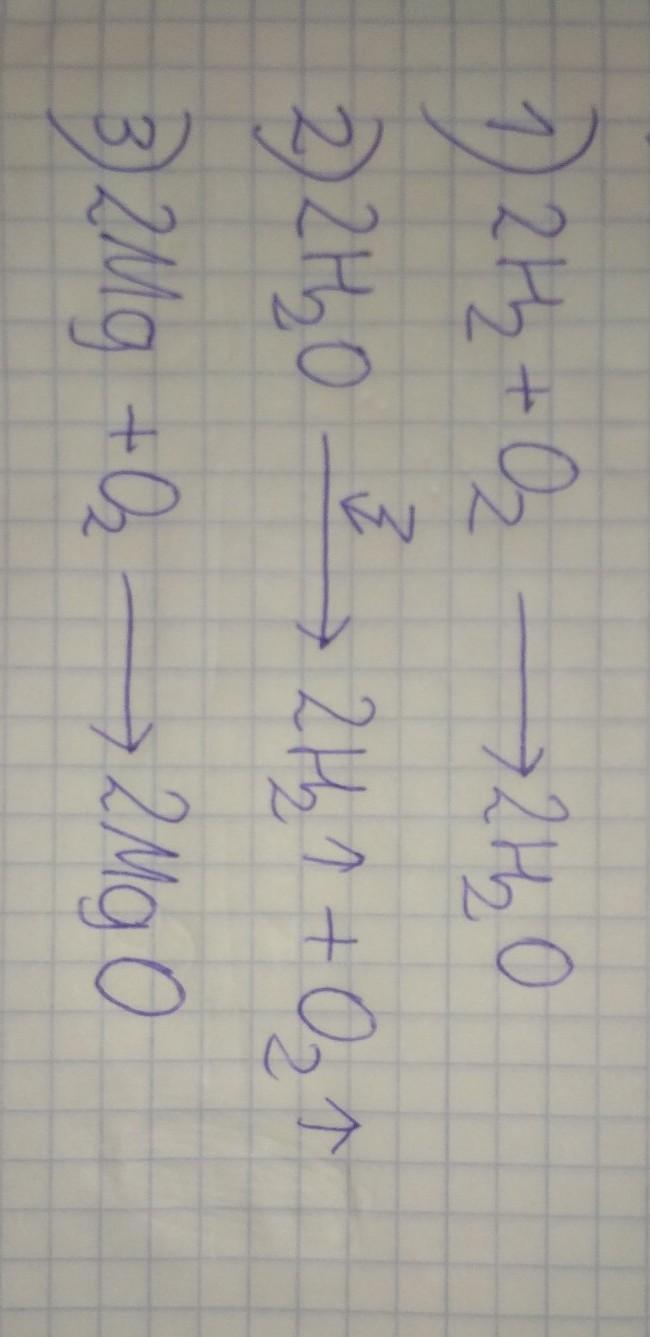 1) 2H₂ + O₂ → 2H₂O
2) 2H₂O → 2H₂↑ + O₂↑
3) 2Mg + O₂ → 2MgO